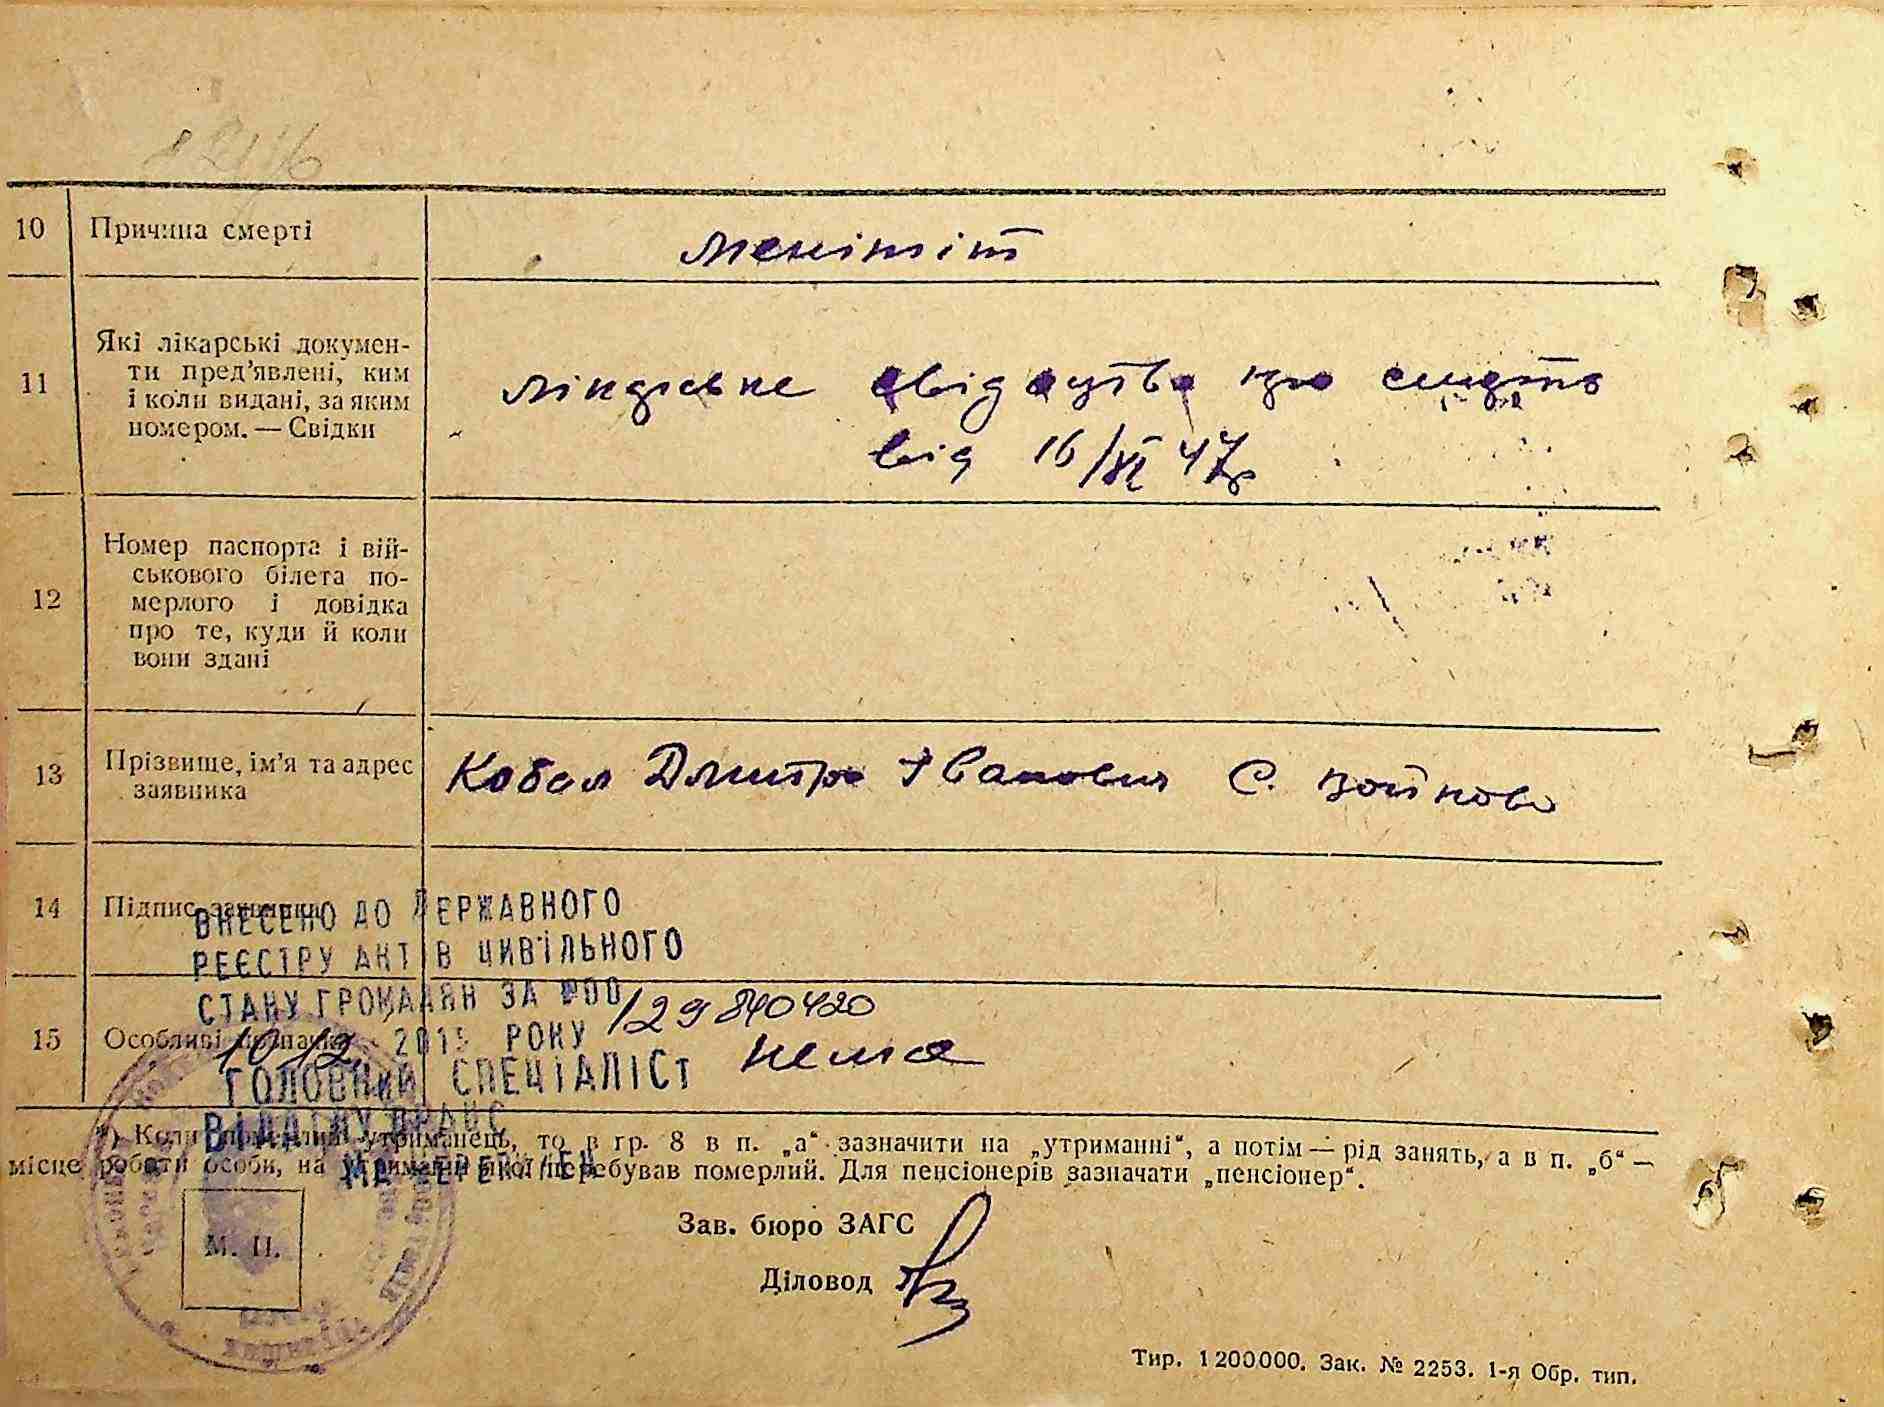 10 Причина смерті менінгіт
11 Які лікарські докумен-
ти пред’явлені, ким
і коли видані, за яким
номером. — Свідки
лікарське свідоцтво про смерть
від 16/XI 47р
12 Номер паспорта і вій-
ськового білета по-
мерлого і довідка
про те, куди й коли
вони здані
13 Прізвище, ім’я та адрес
заявника
Кобал Дмитро Іванович с. Войково
14 Підпис заявника
ВНЕСЕНО ДО ДЕРЖАВНОГО
РЕЄСТРУ АКТІВ ЦИВІЛЬНОГО
СТАНУ ГРОМАДЯН ЗА №00 129840420
15 Особливі познач
10 12 2015 РОКУ
нема
ГОЛОВНИЙ СПЕЦІАЛІСТ
ВІДДІЛУ ДРАЦС
*) Коли померлий утриманець, то в гр. 8 в п. „а“ зазначити на „утриманні“, а потім — рід занять, а в п. „б“ —
місце роботи особи, на утриманні якої перебував померлий. Для пенсіонерів зазначати „пенсіонер“.
Зав. бюро ЗАГС
М. П.
Діловод
Тир. 1200000. Зак. № 2253. 1-я Обр. тип.